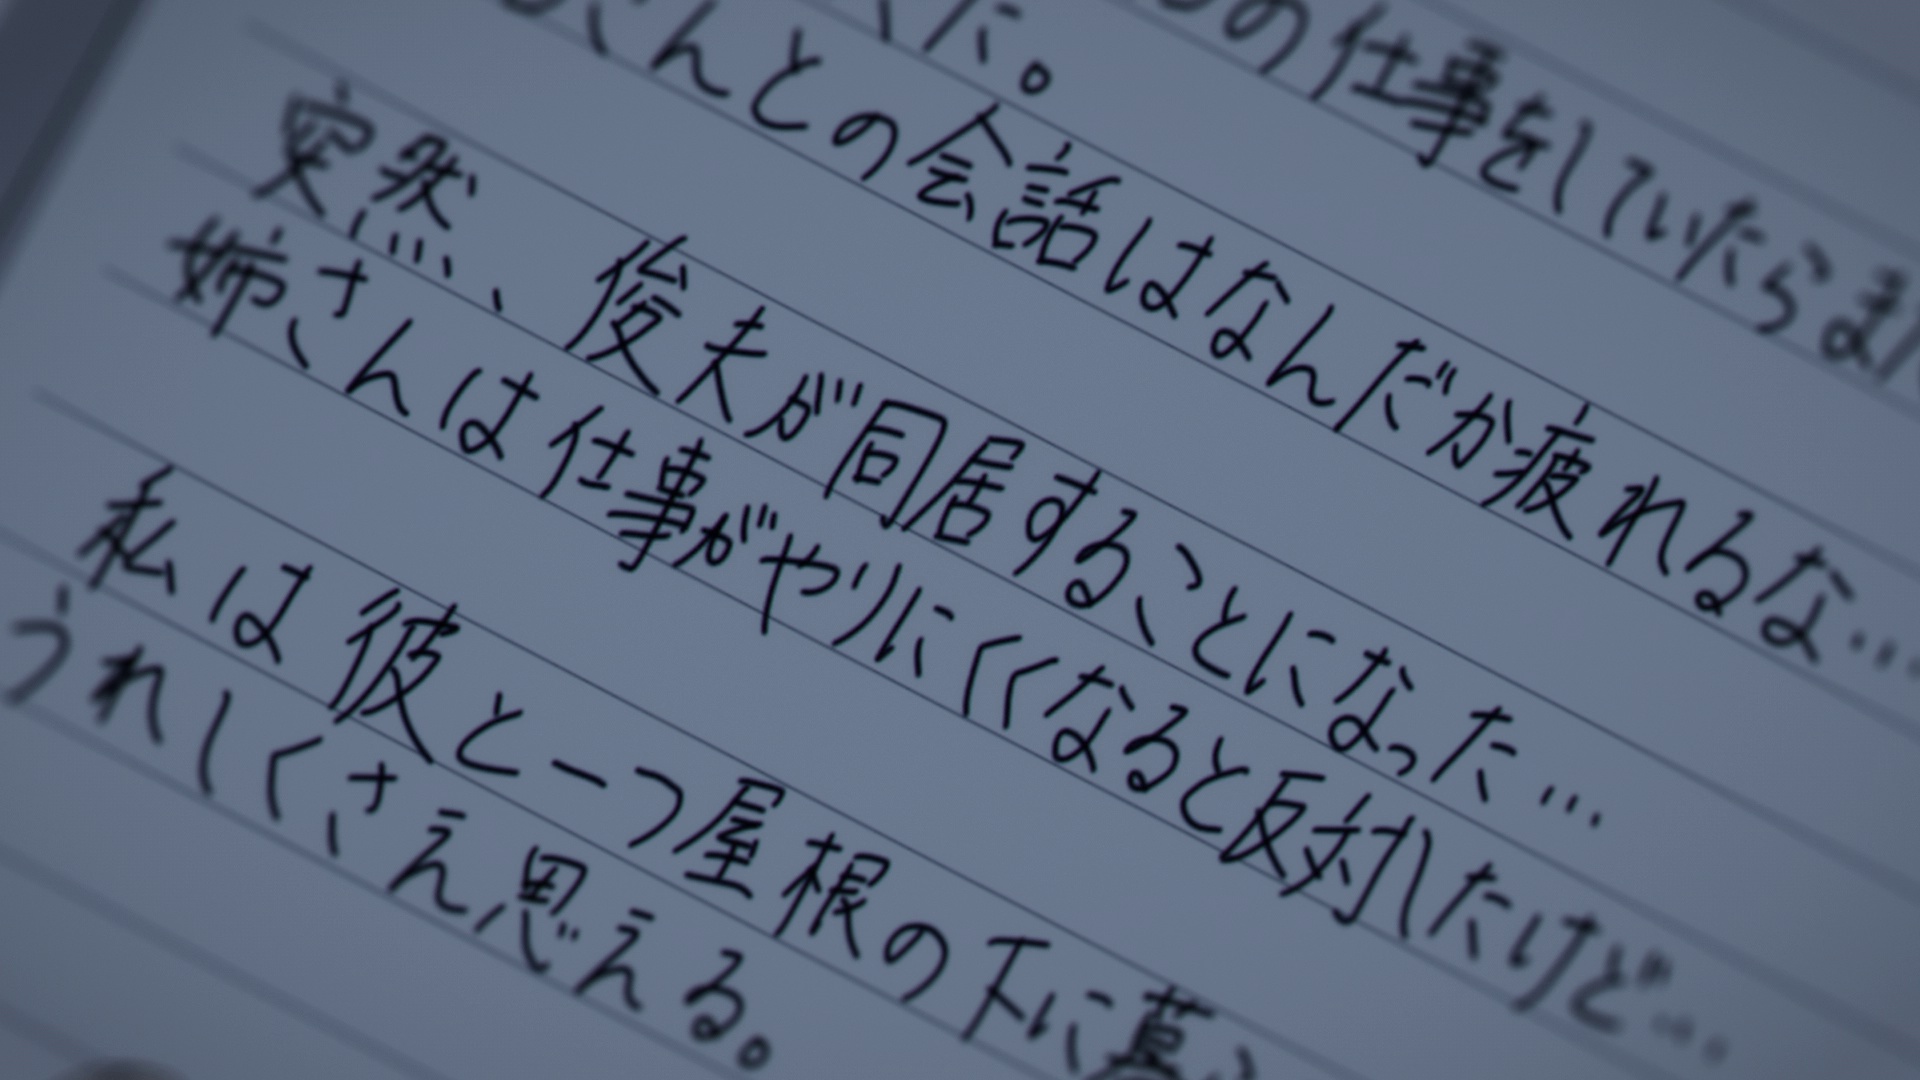 の仕事をしていたらまた
た。
さんとの会話はなんだか疲れるな…
突然、俊夫が同居することになった…
姉さんは仕事がやりにくくなると反対したけど…
私は彼と一つ屋根の下に暮ら
うれしくさえ思える。